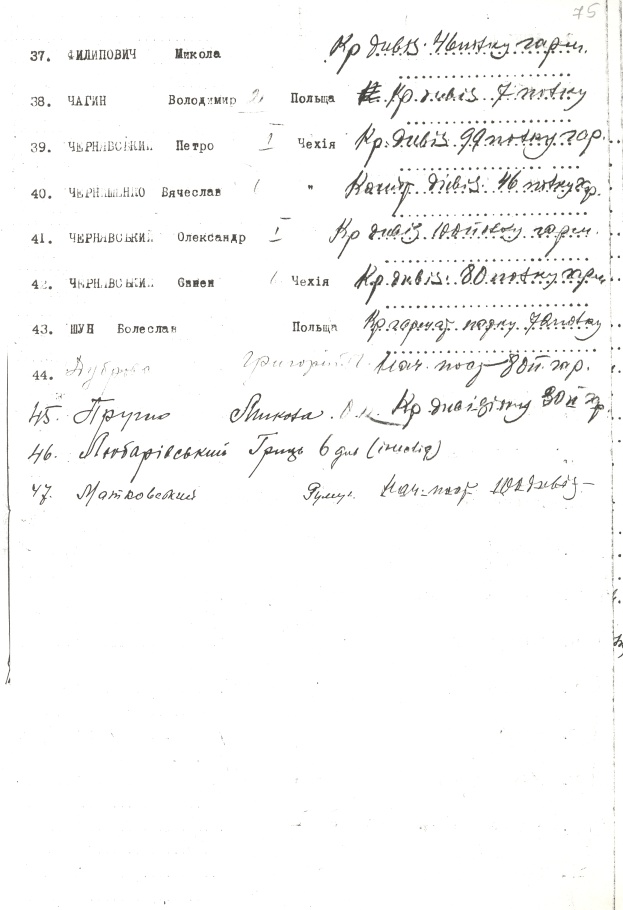 75
37. ФИЛИПОВИЧ Микола Кр дивіз. 46 полку гарм.
38. ЧАГИН Володимир 2 Польща Кр дивіз 7 полку
39. ЧЕРНЯВСЬКИЙ Петро I Чехія Кр. дивіз 99 полку гар.
40. ЧЕРНИШЕНКО Вячеслав " дивіз. 46 полку
41. ЧЕРНЯВСЬКИЙ Олександр I Кр дивіз полку гарм.
42. ЧЕРНЯВСЬКИЙ Семен Чехія Кр. дивіз. 80 полку гарм
43. ШУН Болеслав Польща Кр гармат полку
44. Дуброва Григорій Нач. пост 80 п гар.
45. Микола Кр дивізіону п гр.
46. Любарівський Гриць (інвалід)
47. Матковський Румун. Нач. пост дивіз